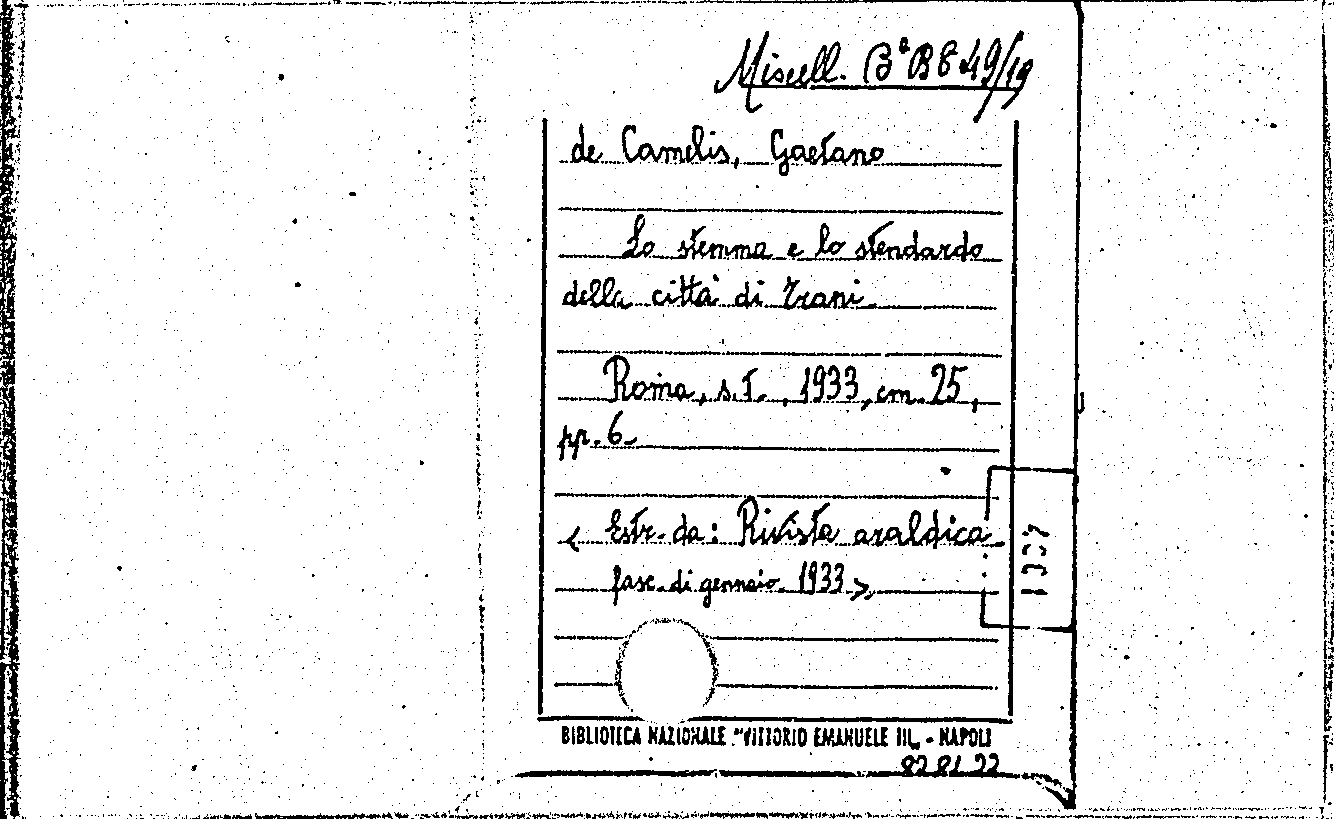 Miscell. Bª B 849/19
de Camelis, Gaetano
Lo stemma e lo stendardo
della città di Trani
Roma, s.t., 1933, cm. 25,
pp. 6.
< Estr. da: Rivista araldica
fasc. di gennaio 1933 >
BIBLIOTECA NAZIONALE "VITTORIO EMANUELE III„ - NAPOLI